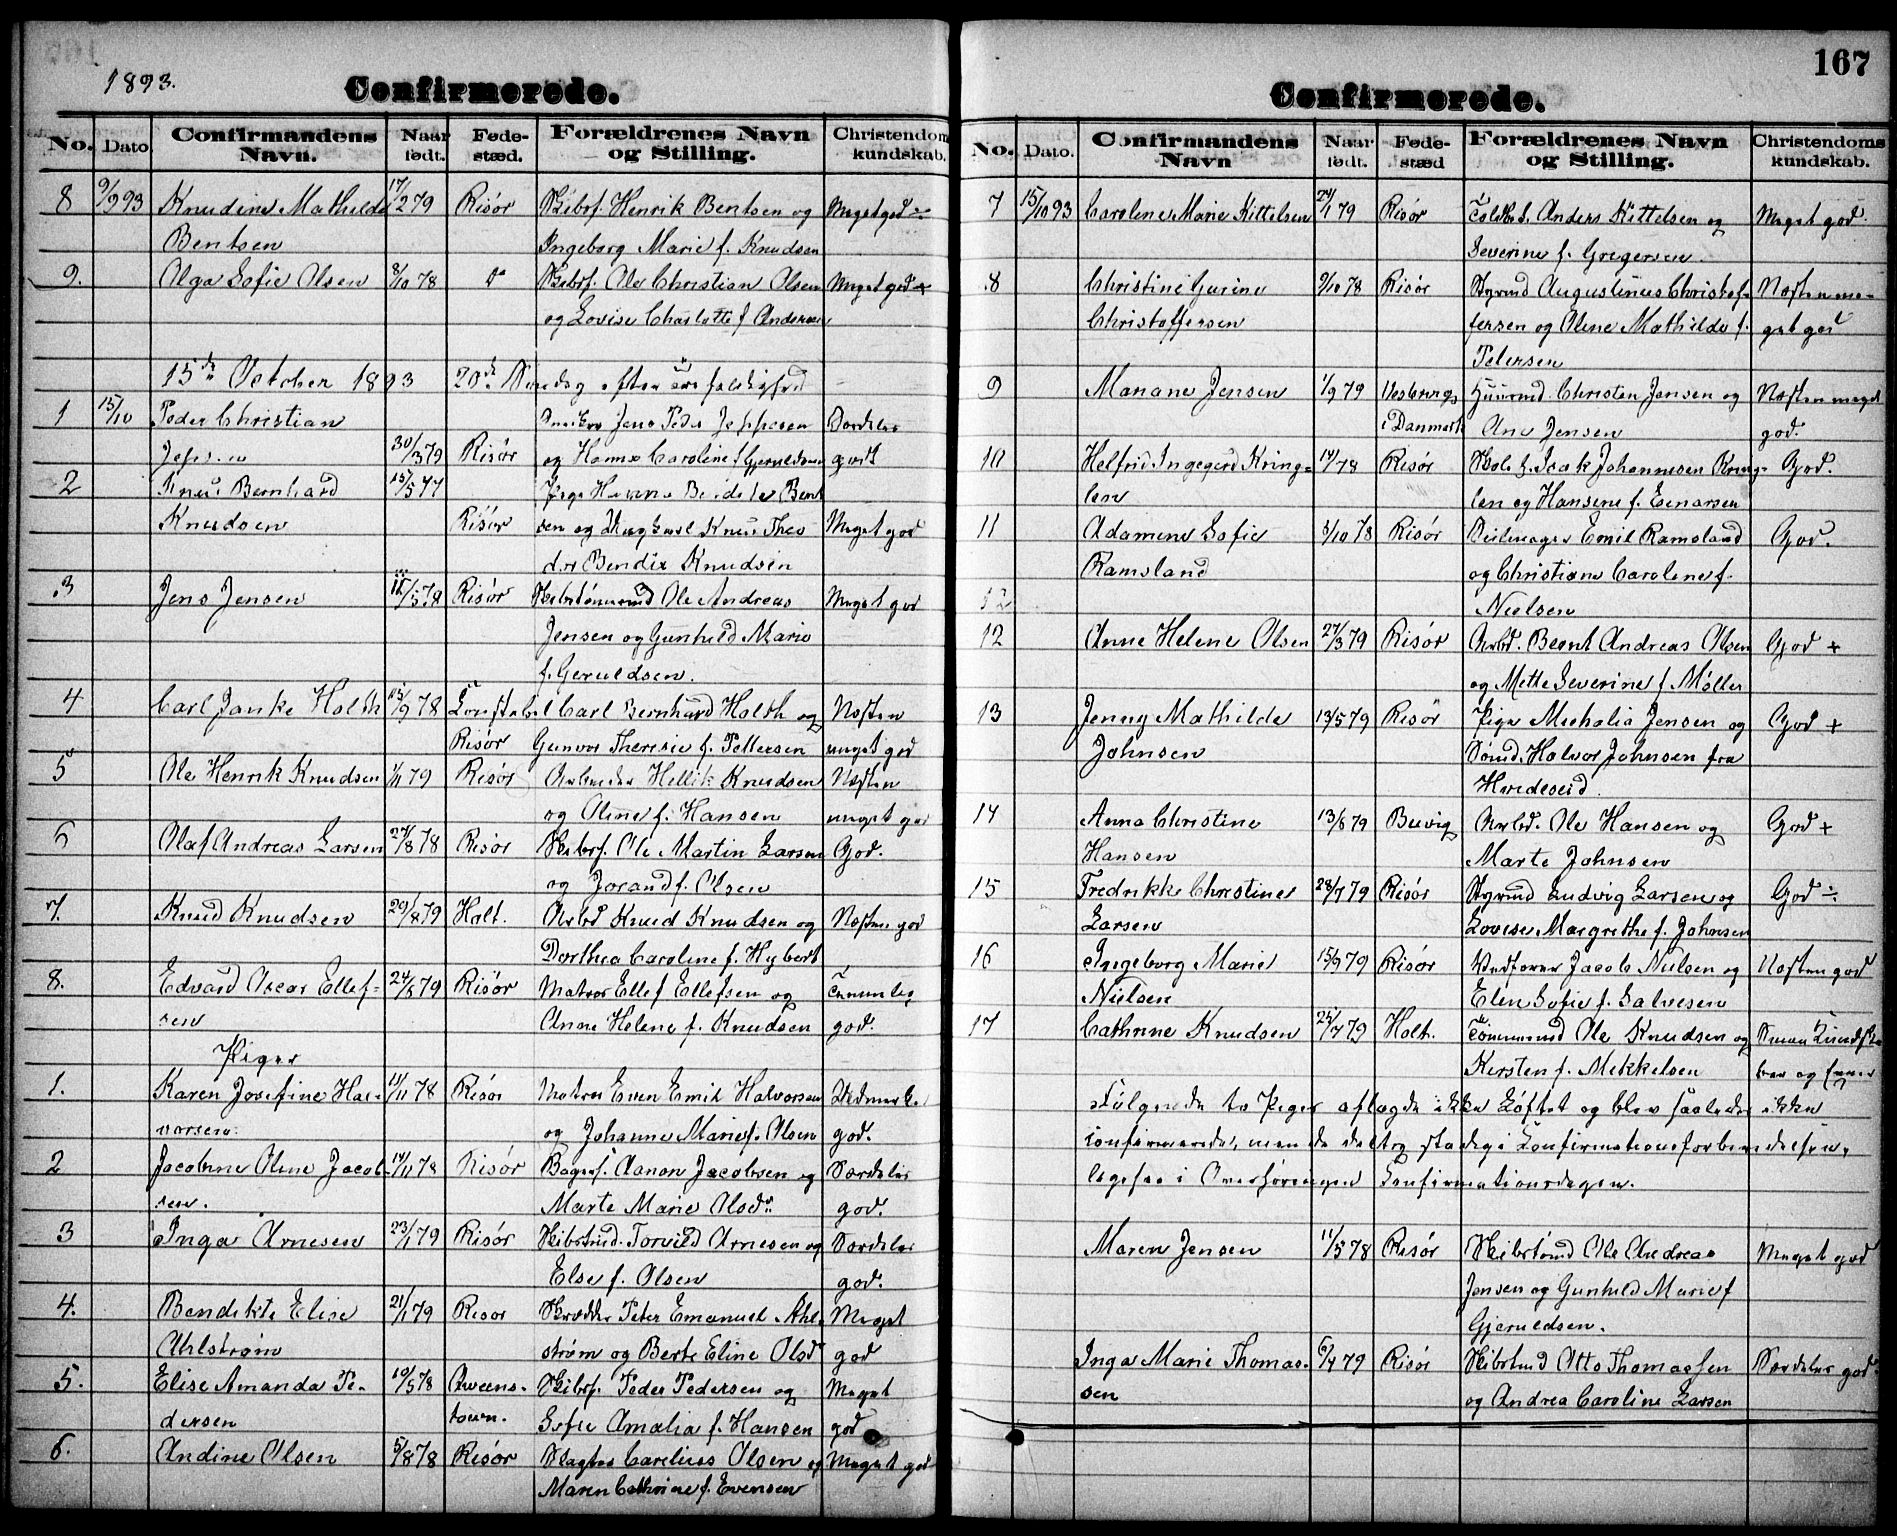 1893.
Confirmerede.
No. Dato. Confirmandens Navn. Naar født. Fødestæd. Forældrenes Navn og Stilling. Christendomskundskab.
8 9/9 93 Knudine Mathilde 17/2 79 Risør Skibsf. Henrik Bentsen og Meget god ÷
Bentsen Ingeborg Marie f. Knudsen
9. Olga Sofie Olsen 8/10 78 do Skibsf. Ole Christian Olsen Meget god +
og Lovise Charlotte f. Andersen
15de October 1893 20de Søndag efter
1 15/10 Peder Christian Jens Peder Jeppesen Særdeles
30/3 79 Risør og Hanna Caroline f. Gjeruldsen godt
2 Bernhard 15/5 77 Pige Hanna Bent
Knudsen Risør sen og Ungkarl Knud Theo Meget god
dor Bendix Knudsen
3 Jens Jensen 15/5 78 Risør Skibstømmermd Ole Andreas Meget god
Jensen og Gunhild Marie
f. Geruldsen.
4 Carl Janke Holth 15/9 78 Carl Bernhard Holth og Næsten
Risør Gunvor Theresie f. Pettersen meget god
5 Ole Henrik Knudsen 1/11 79 Risør Arbeider Hellik Knudsen Næsten
og Oline f. Hansen meget god
6 Olaf Andreas Larsen 27/8 78 Risør Skibsf. Ole Martin Larsen God.
og Jorand f. Olsen
7. Knud Knudsen 20/8 79 Holt. Arbd Knud Knudsen og Næsten god
Dorthea Caroline f. Hybert
8. Edvard Oscar Ellef- 24/8 79 Risør Matros Ellef Ellefsen og Temmelig
sen Anne Helene f. Knudsen god.
Piger
1. Karen Josefine Hal- 11/11 78 Risør Matros Even Emil Halvorsen Udmerket
vorsen. og Johanne Marie f. Olsen god.
2 Jacobine Oline Jacob- 14/11 78 Risør Bagerf. Aanon Jacobsen og Særdeles
sen. Marte Marie Olsdr god.
3 Inga Arnesen 23/1 79 Risør Skibstmd. Torvild Arnesen og Særdeles
Else f. Olsen god.
4. Bendikte Elise 21/1 79 Risør Skrædder Peter Emanuel Ahl- Meget
Ahlstrøm strøm og Berte Eline Olsdr god
5. Elise Amanda Pe- 10/5 78 Qweens- Skibsf. Peder Pedersen og Meget
dersen town. Sofie Amalia f. Hansen god
6. Andine Olsen 5/8 78 Risør Slagter Carelius Olsen og Meget god
Maren Cathrine f. Evensen
167
Confirmerede.
No. Dato. Confirmandens Navn Naar født. Fødestæd Forældrenes Navn og Stilling. Christendomskundskab.
7 15/10 93 Caroline Marie Kittelsen 24/1 79 Risør Toldbet. Anders Kittelsen og Meget god.
Severine f. Gregersen.
8 Christine Gurine 9/10 78 Risør Styrmd Augustinus Christof- Næsten me-
Christoffersen fersen og Oline Mathilde f. get god
Petersen
9 Mariane Jensen 1/9 79 Christen Jensen og Næsten meget
i Danmark Ane Jensen god.
10 Helfrid Ingegerd Kring- 14/ 78 Risør Skole f. Isak Johannesen Kring- God.
len len og Hansine f. Eenarsen
11 Adamine Sofie 3/10 78 Risør Seilmager Emil Ramsland God.
Ramsland og Christiane Caroline f.
12 Nielsen
12 Anne Helene Olsen 27/3 79 Risør Arbd. Bernt Andreas Olsen God +
og Mette Severine f. Møller
13 Jenny Mathilde 13/5 79 Risør Pige Michalia Jensen og God +
Johnsen Sømd. Halvor Johnsen fra
Hvideseid.
14 Anna Christine 13/8 79 Buvig Arbd. Ole Hansen og God +
Hansen Marte Johnsen
15 Fredrikke Christine 28/7 79 Risør Styrmd Ludvig Larsen og God ÷
Larsen Lovise Margrethe f. Johnsen
16 Ingeborg Marie 15/9 79 Risør Jacob Nielsen og Næsten god
Nielsen Elen Sofie f. Salvesen
17 Cathrine Knudsen 25/7 79 Holt. Tømmermd Ole Knudsen og
Kirsten f. Mikkelsen
Følgende to Piger aflagde ikke Løftet og blev saaledes ikke
confirmerede, men de deltog stadig i Confirmationsforberedelsen,
ligesaa i Overhøringen Confirmationsdagen.
Maren Jensen 11/5 78 Risør Skibstømd Ole Andreas Meget god
Jensen og Gunhild Marie f
Gjeruldsen.
Inga Marie Thomas- 6/4 79 Risør Skibstmd Otto Thomassen Særdeles god.
sen og Andrea Caroline Larsen